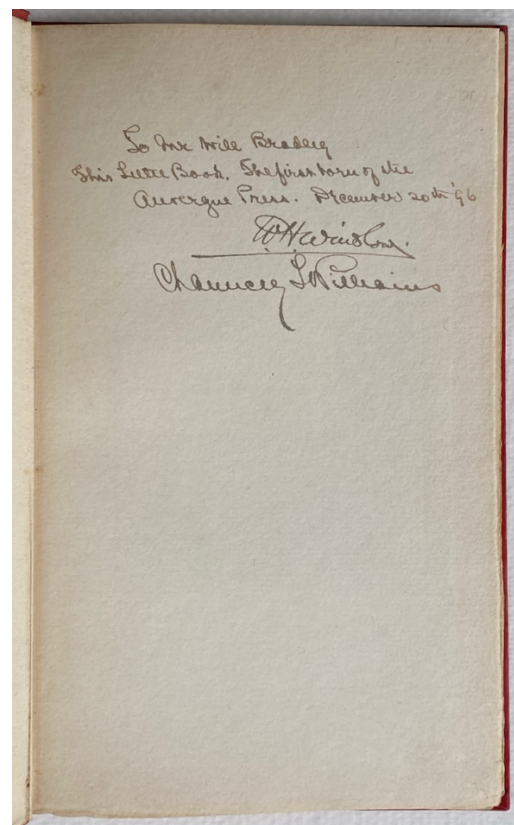 To Mr Will Bradley
This Little Book. The first born of the
Auvergne Press. December 20th '96
W.H. Winslow.
Chauncey L Williams